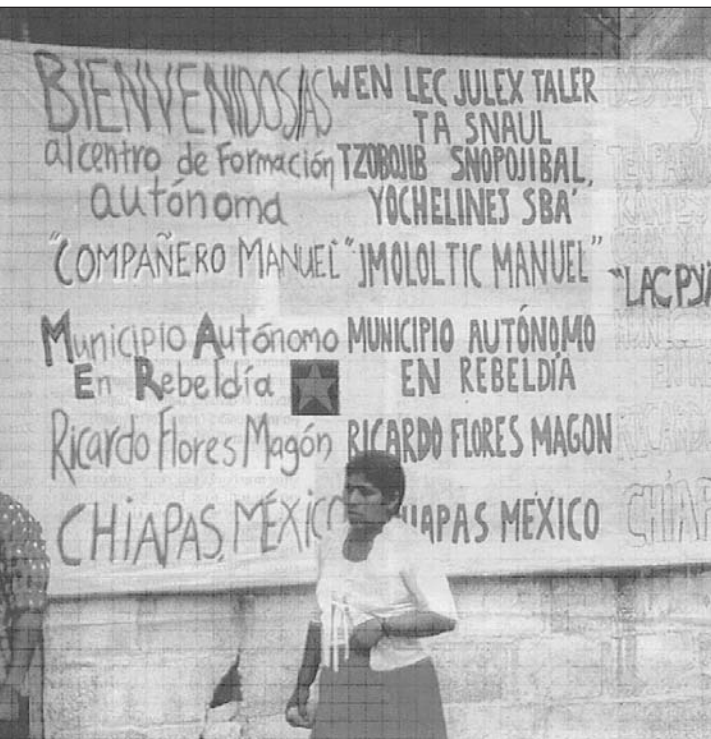 BIENVENIDOS/AS
al centro de Formación
autónoma
"COMPAÑERO MANUEL"
Municipio Autónomo
En Rebeldía
Ricardo Flores Magón
CHIAPAS, MÉXICO
WEN LEC JULEX TALER
TA SNAUL
TZOBOJIB SNOPOJIBAL,
YOCHELINEJ SBA'
"JMOLOLTIC MANUEL"
MUNICIPIO AUTÓNOMO
EN REBELDÍA
RICARDO FLORES MAGON
CHIAPAS MÉXICO